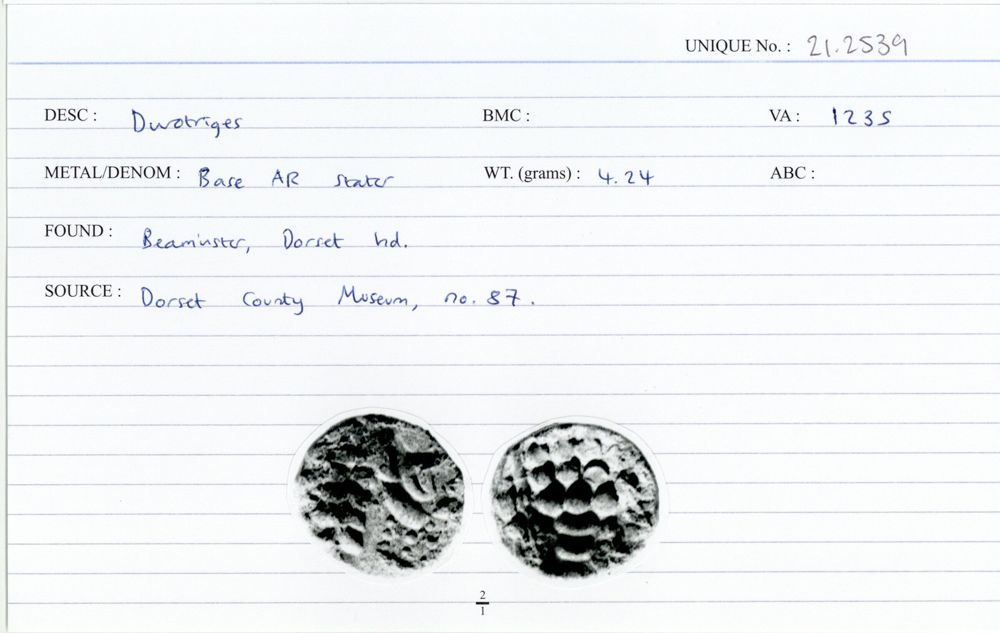 UNIQUE No. : 21.2539
DESC : Durotriges BMC : VA : 1235
METAL/DENOM : Base AR stater WT. (grams) : 4.24 ABC :
FOUND : Beaminster, Dorset hd.
SOURCE : Dorset County Museum, no. 87.
2
1